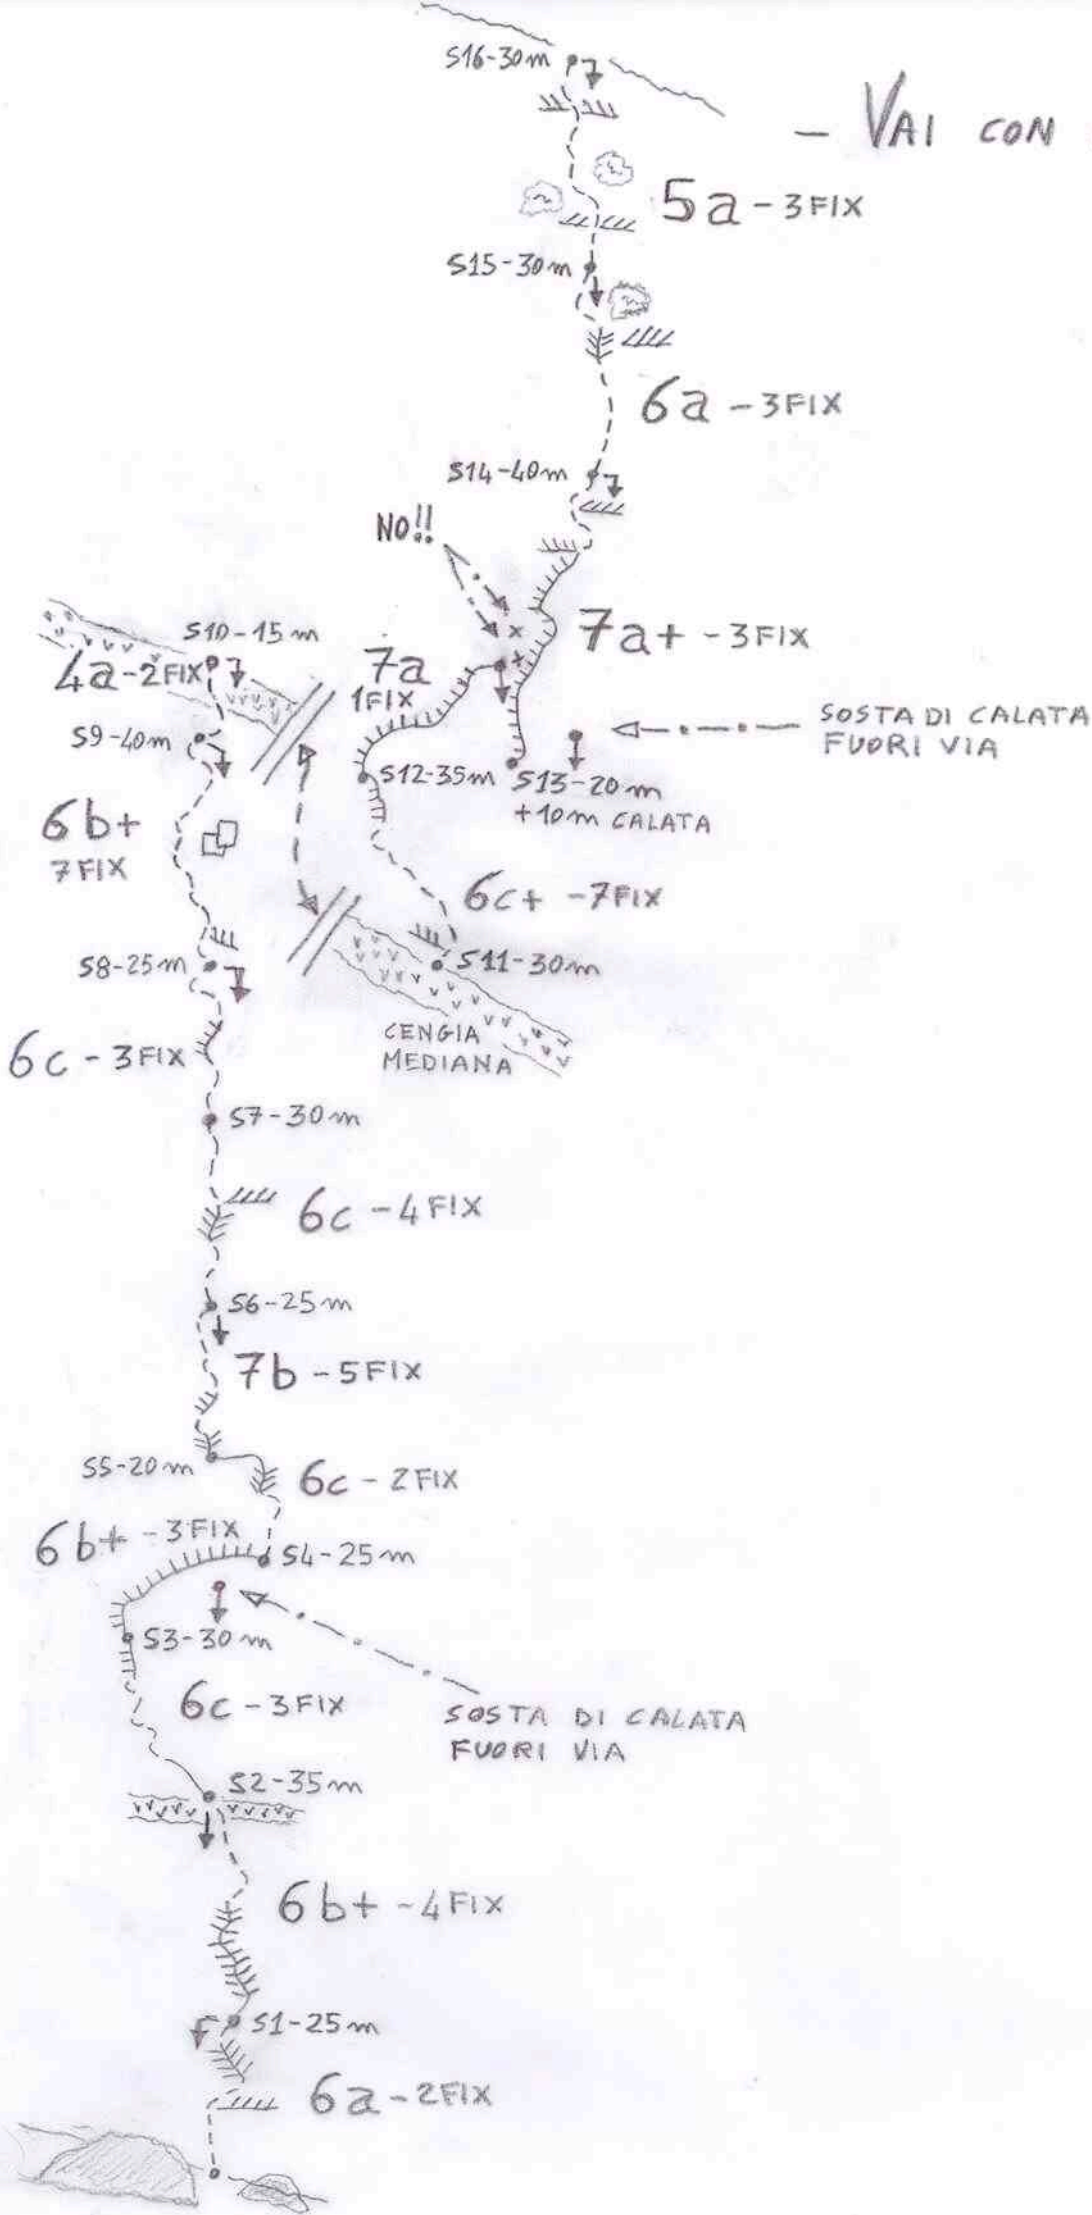 S16-30m
- VAI CON
5a-3FIX
S15-30m
6a-3FIX
S14-40m
NO!!
7a+-3FIX
S10-15m
4a-2FIX
7a
1FIX
SOSTA DI CALATA
FUORI VIA
S9-40m
S12-35m
S13-20m
+10m CALATA
6b+
7FIX
6c+ -7FIX
S8-25m
S11-30m
CENGIA
MEDIANA
6c-3FIX
S7-30m
6c-4FIX
S6-25m
7b-5FIX
S5-20m
6c-2FIX
6b+-3FIX
S4-25m
S3-30m
6c-3FIX
SOSTA DI CALATA
FUORI VIA
S2-35m
6b+-4FIX
S1-25m
6a-2FIX